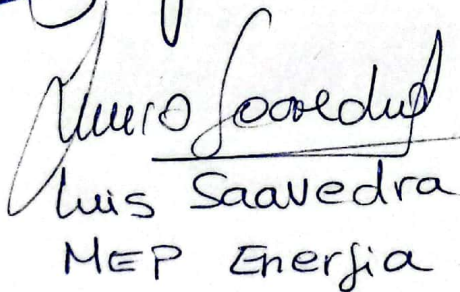 Luis Saavedra
MEP Energia